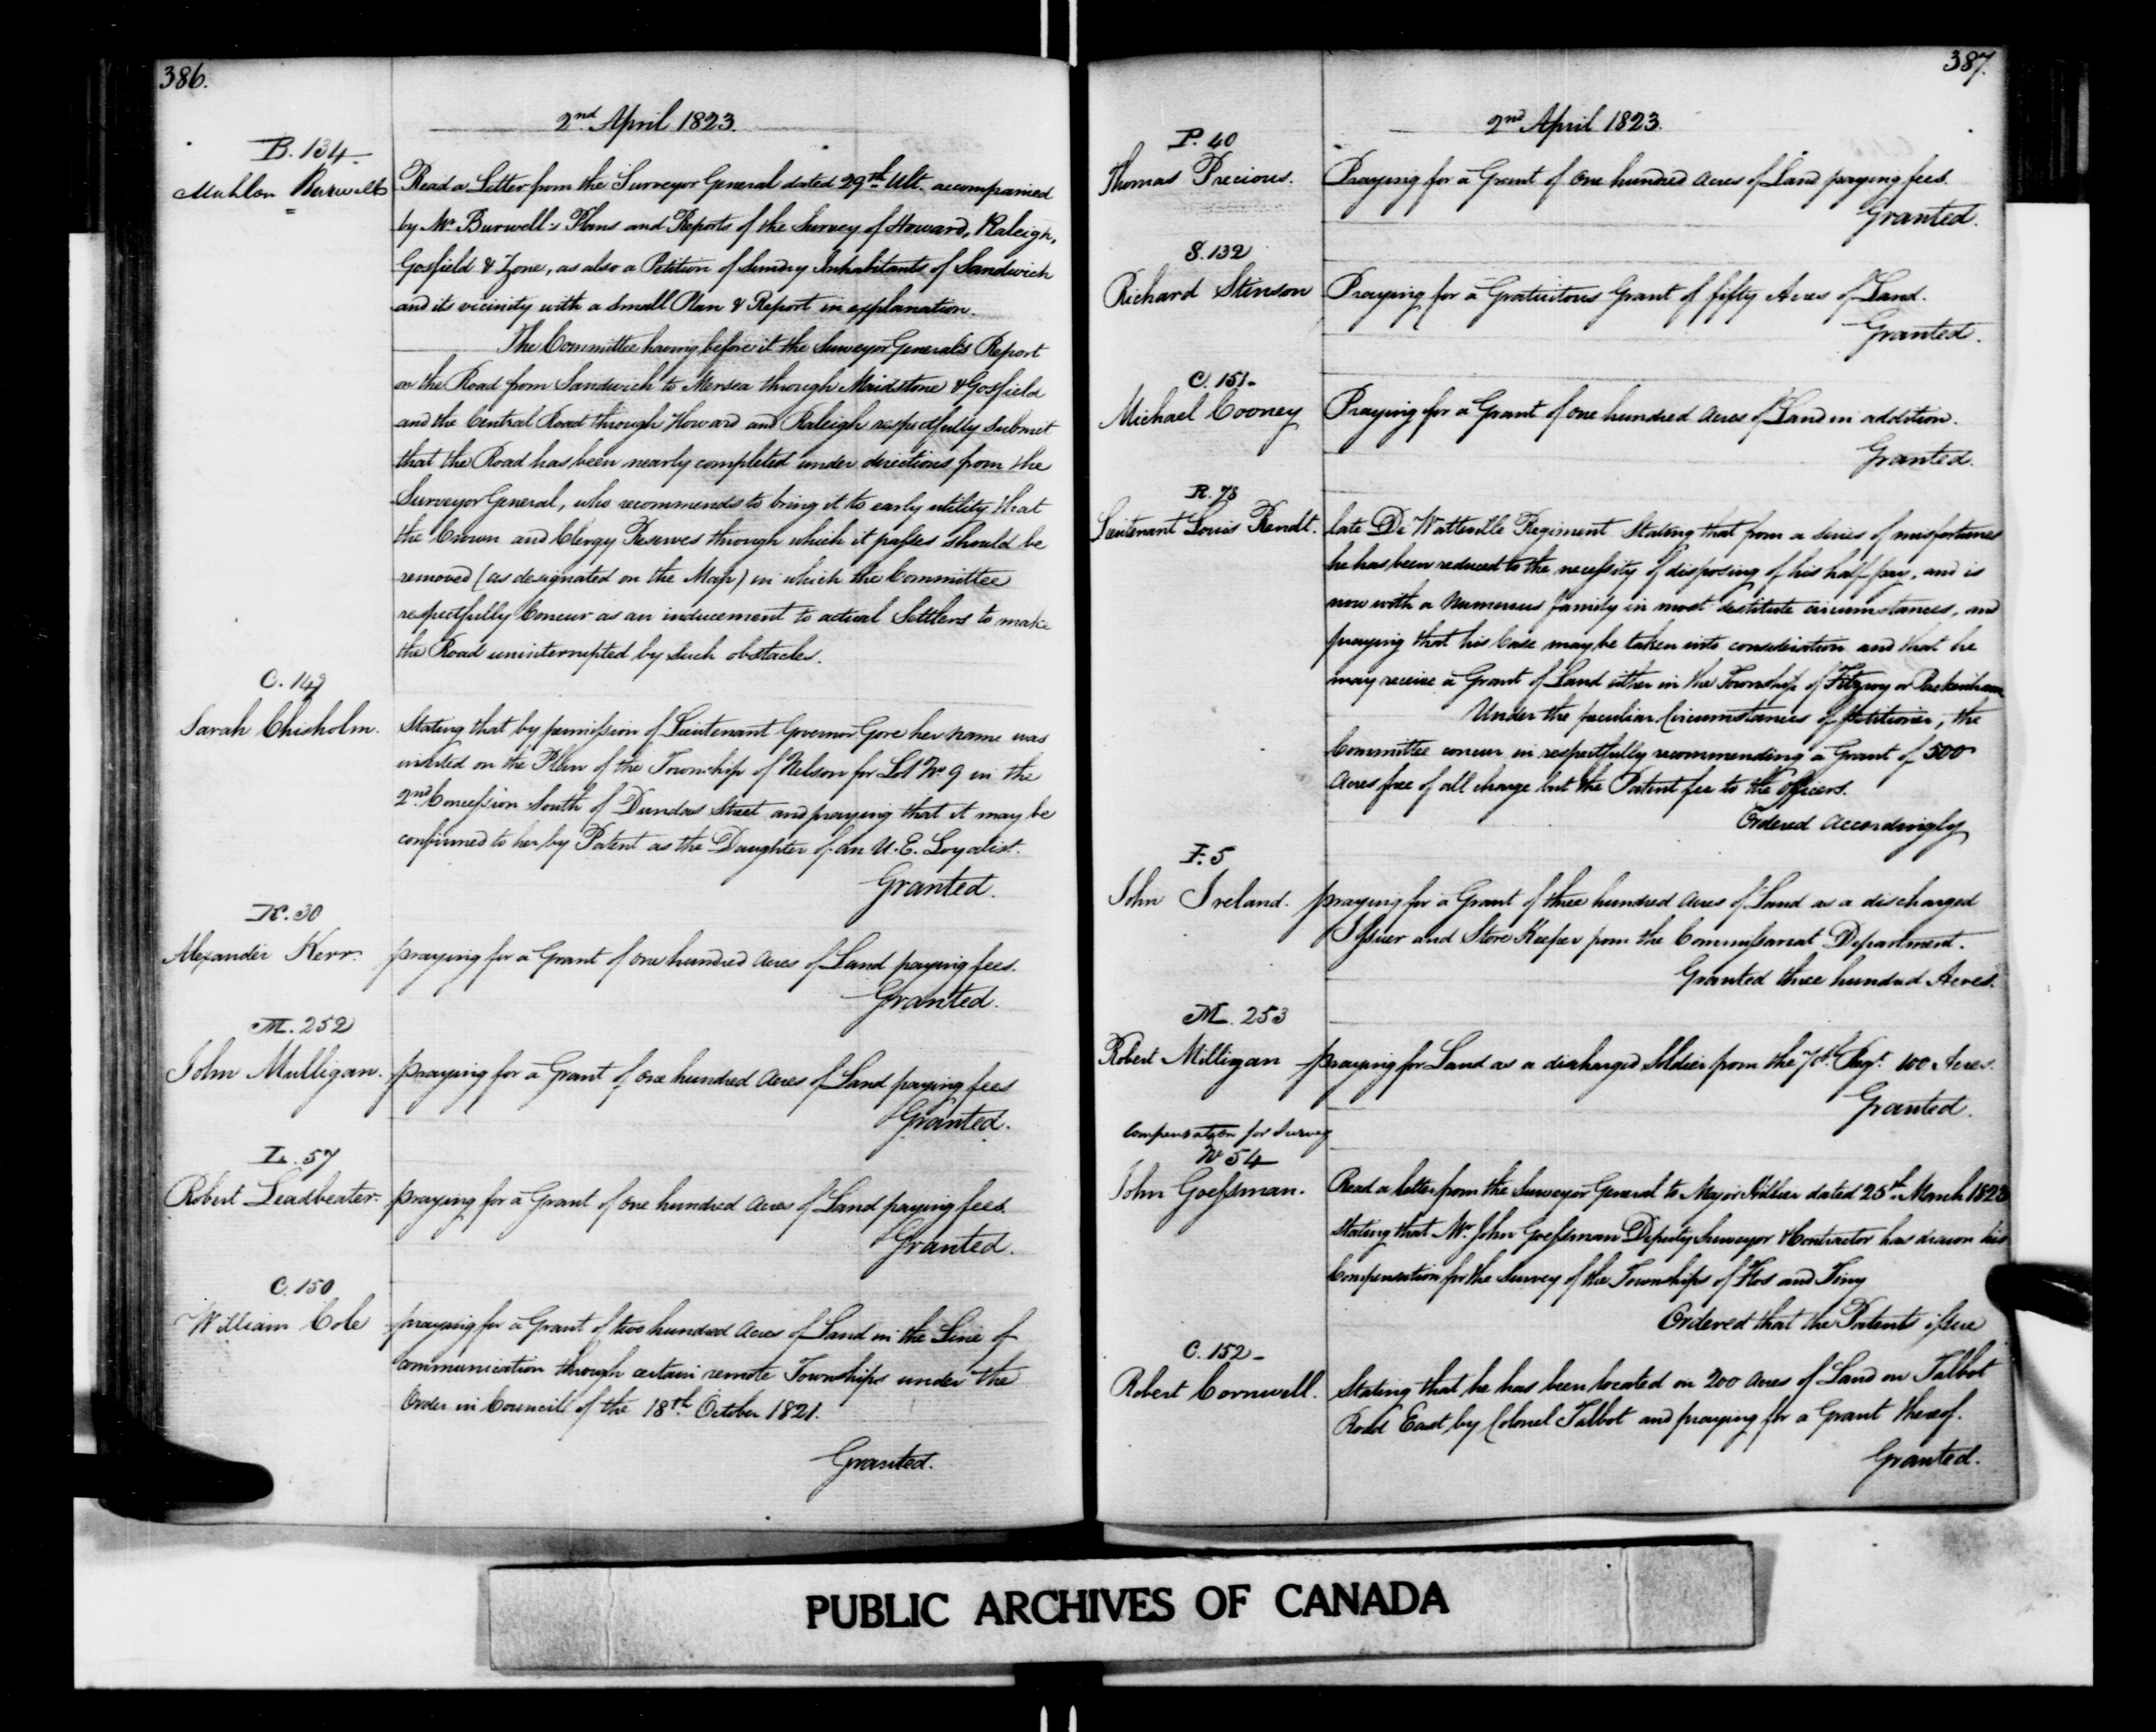 386.
2nd April 1823.
B. 134
Mahlon Burwell
Read a Letter from the Surveyor General dated 29th Ult. accompanied
by Mr Burwell's Plans and Reports of the Survey of Howard, Raleigh,
Gosfield & Zone, as also a Petition of Sundry Inhabitants of Sandwich
and its vicinity with a Small Plan & Report in explanation.
The Committee having before it the Surveyor General's Report
on the Road from Sandwich to Mersea through Maidstone & Gosfield
and the Central Road through Howard and Raleigh respectfully submit
that the Road has been nearly completed under directions from the
Surveyor General, who recommends to bring it to early utility that
the Crown and Clergy Reserves through which it passes should be
removed (as designated on the Map) in which the Committee
respectfully Concur as an inducement to actual Settlers to make
the Road uninterrupted by such obstacles.
C. 149
Sarah Chisholm.
Stating that by permission of Lieutenant Governor Gore her name was
inserted on the Plan of the Township of Nelson for Lot No 9 in the
2nd Concession South of Dundas Street and praying that it may be
confirmed to her by Patent as the Daughter of an U.E. Loyalist.
Granted.
K. 30
Alexander Kerr.
praying for a Grant of one hundred Acres of Land paying fees.
Granted.
M. 252
John Mulligan.
praying for a Grant of one hundred Acres of Land paying fees
Granted.
L. 57
Robert Leadbeater
praying for a Grant of one hundred Acres of Land paying fees.
Granted.
C. 150
William Cole
praying for a Grant of two hundred Acres of Land in the Line of
communication through certain remote Townships under the
Order in Council of the 18th October 1821.
Granted.
387.
2nd April 1823.
P. 40
Thomas Precious.
Praying for a Grant of One hundred Acres of Land paying fees.
Granted.
S. 132
Richard Stinson
Praying for a Gratuitous Grant of fifty Acres of Land.
Granted.
C. 151
Michael Cooney
Praying for a Grant of One hundred Acres of Land in addition.
Granted.
R. 78
Lieutenant Louis Rendt.
late De Watteville Regiment Stating that from a series of misfortunes
he has been reduced to the necessity of disposing of his half pay, and is
now with a numerous family in most destitute circumstances, and
praying that his Case may be taken into consideration and that he
may receive a Grant of Land either in the Township of Fitzroy or Packenham
Under the peculiar Circumstances of Petitioner, the
Committee concur in respectfully recommending a Grant of 500
Acres free of all charge but the Patent fee to the Officers.
Ordered Accordingly
I. 5
John Ireland.
praying for a Grant of three hundred Acres of Land as a discharged
Issuer and Store Keeper from the Commissariat Department.
Granted three hundred Acres.
M. 253
Robert Milligan
praying for Land as a discharged Soldier from the 70th Regt. 100 Acres.
Granted.
Compensation for Survey
No 54
John Goessman.
Read a letter from the Surveyor General to Major Hillier dated 25th March 1823
stating that Mr. John Goessman Deputy Surveyor & Contractor has drawn his
Compensation for the Survey of the Townships of Flos and Tiny
Ordered that the Patents issue
C. 152
Robert Cornwell.
Stating that he has been located on 200 Acres of Land on Talbot
Road East by Colonel Talbot and praying for a Grant thereof.
Granted.
PUBLIC ARCHIVES OF CANADA